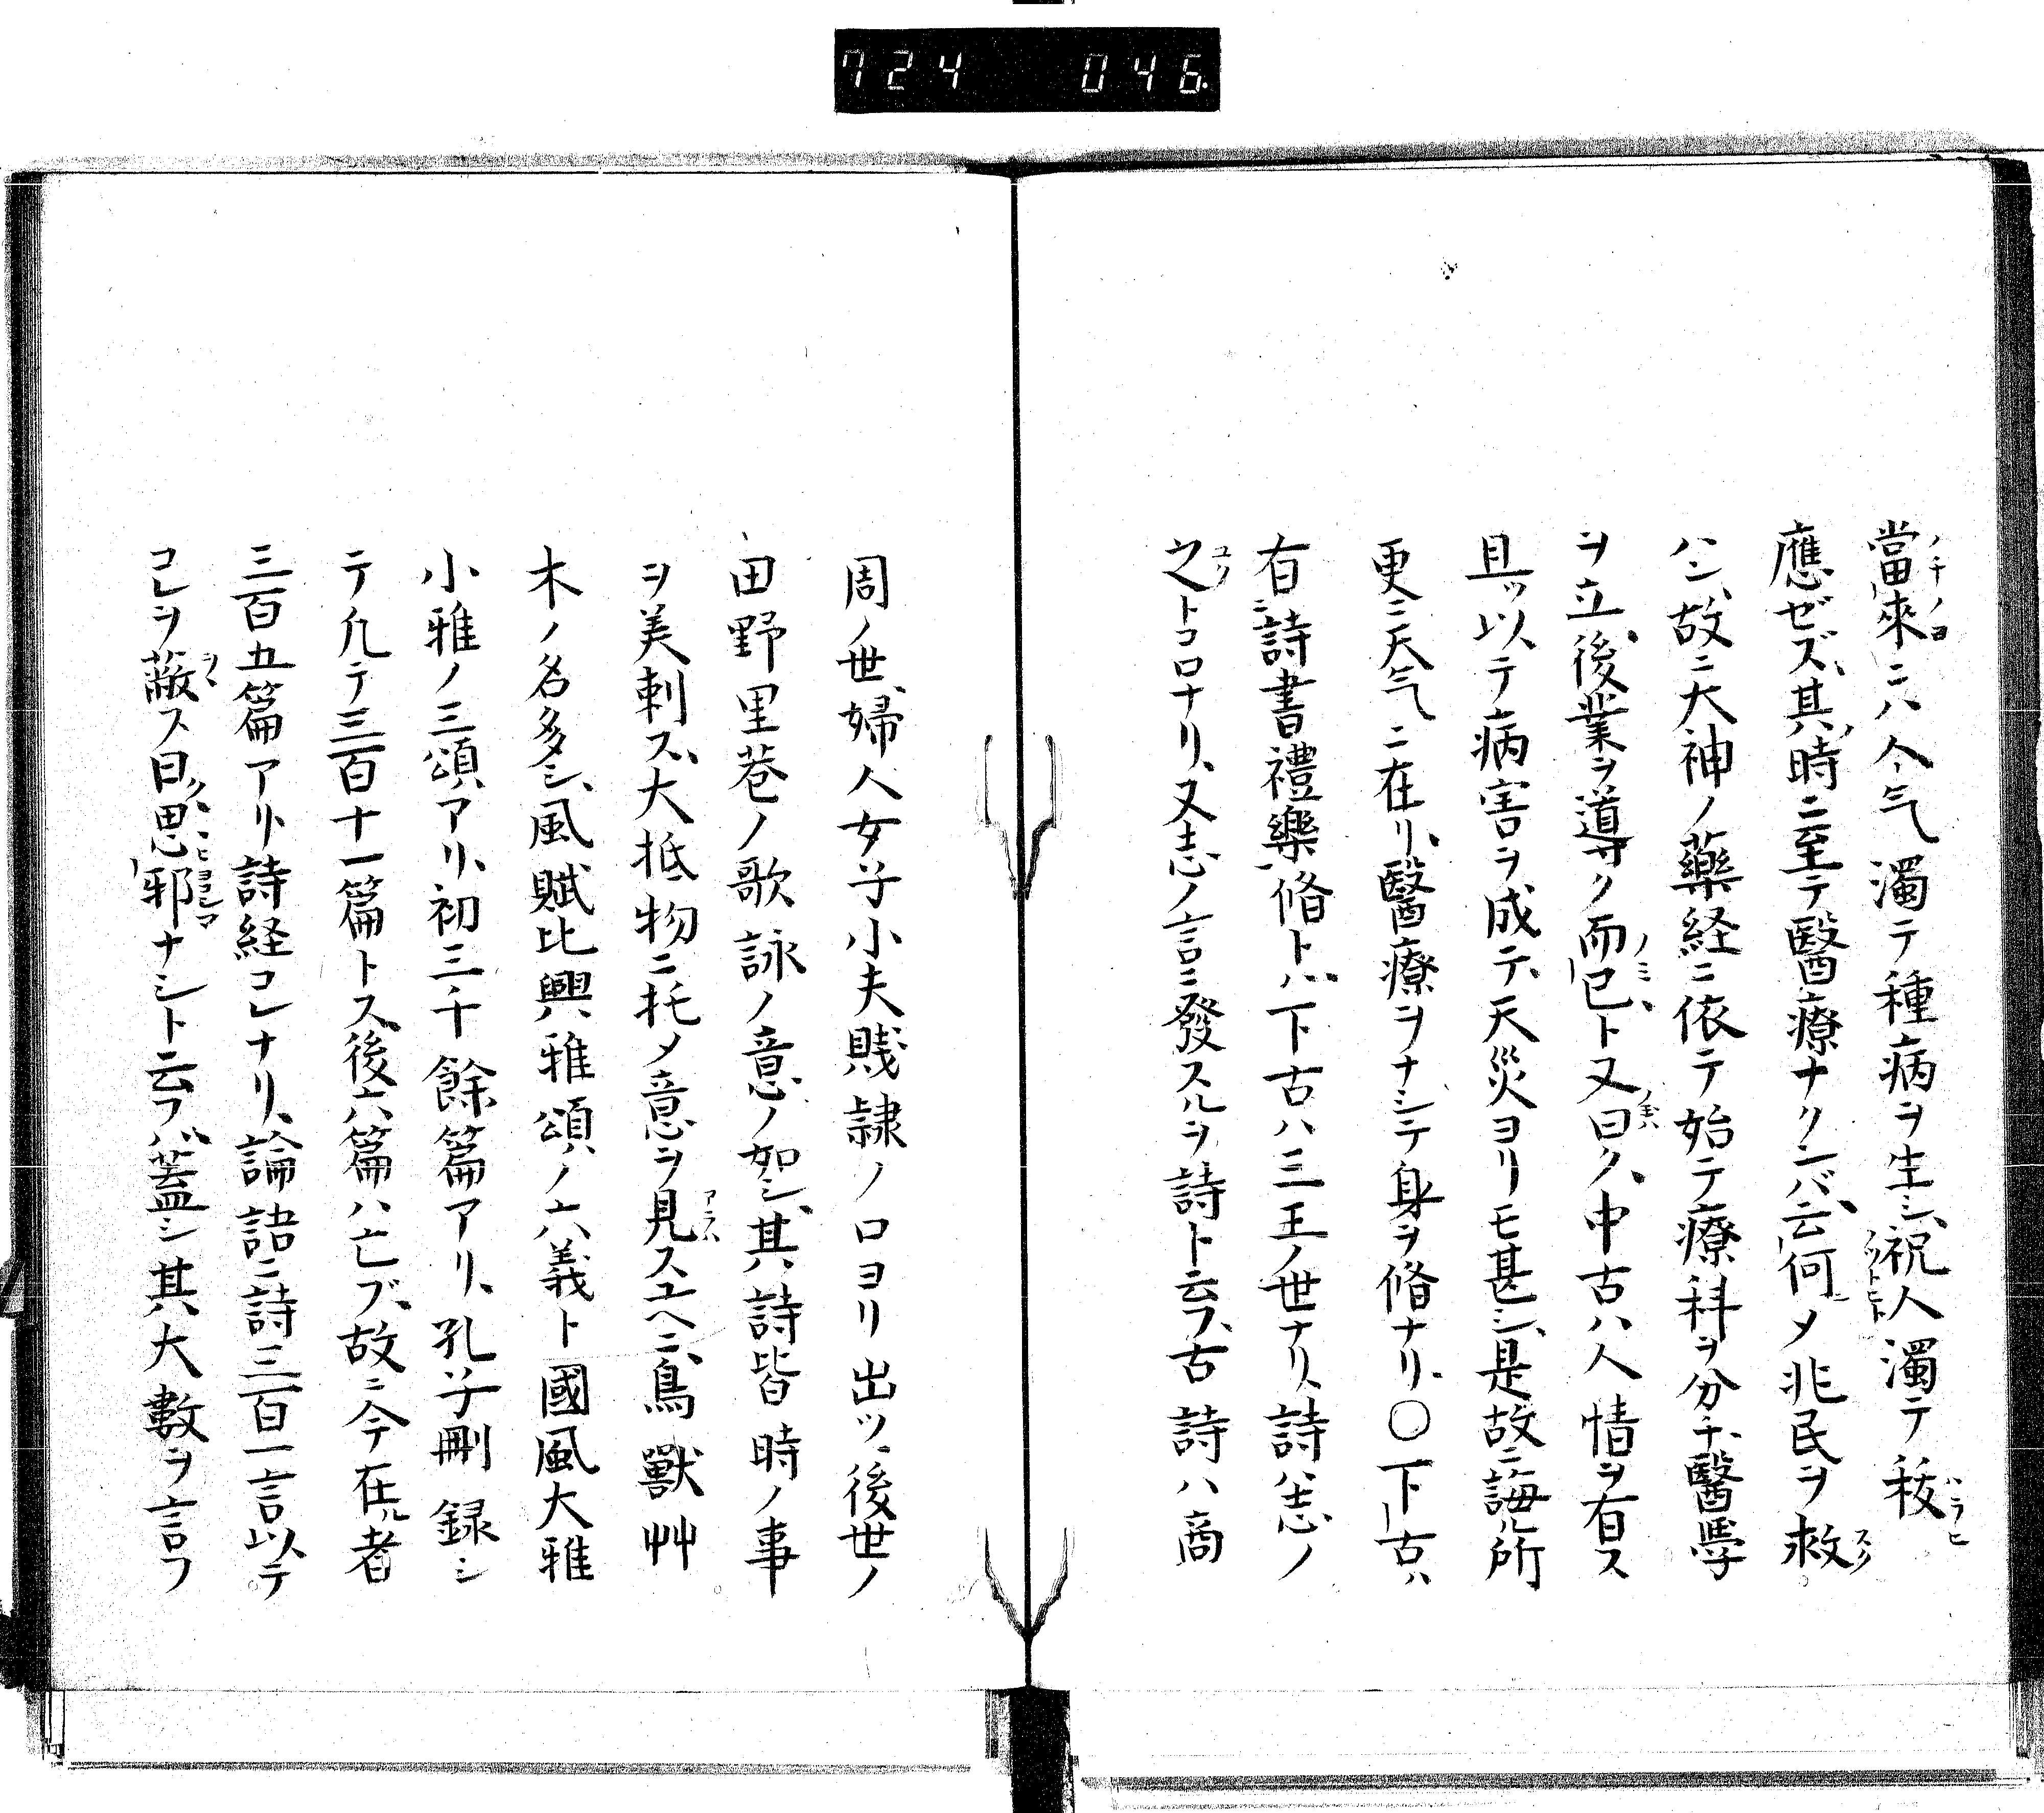 724 046.
當來ニハ今气濁テ種病ヲ生シ、祝人濁テ祓
應ゼズ、其時ニ至テ醫療ナクンバ、云何メ兆民ヲ救
ハン、故ニ大神ノ藥経ニ依テ始テ療科ヲ分チ、醫學
ヲ立、後業ヲ導ク而已ト又曰ク、中古ハ人情ヲ有ス
且ツ以テ病害ヲ成テ、天災ヨリモ甚シ、是故ニ誨ル所
更ニ天气ニ在リ、醫療ヲナシテ身ヲ脩ナリ、〇下古ハ
有ニ詩書禮樂脩トハ、下古ハ三王ノ世ナリ、詩ハ志ノ
之トコロナリ、又志ノ言ニ發スルヲ詩ト云フ、古詩ハ商
周ノ世、婦人女子小夫賤隷ノ口ヨリ出ツ、後世ノ
田野里巷ノ歌詠ノ意ノ如シ、其詩皆時ノ事
ヲ美刺ス、大抵物ニ托メ意ヲ見スユヘニ、鳥獸艸
木ノ名多シ、風賦比興雅頌ノ六義ト國風大雅
小雅ノ三頌アリ、初三千餘篇アリ、孔子刪録シ
テ凡テ三百十一篇トス、後六篇ハ亡ブ、故ニ今在ル者
三百五篇アリ、詩経コレナリ、論語ニ詩三百一言以テ
コレヲ蔽ス曰思邪ナシト云フハ、蓋シ其大數ヲ言フ